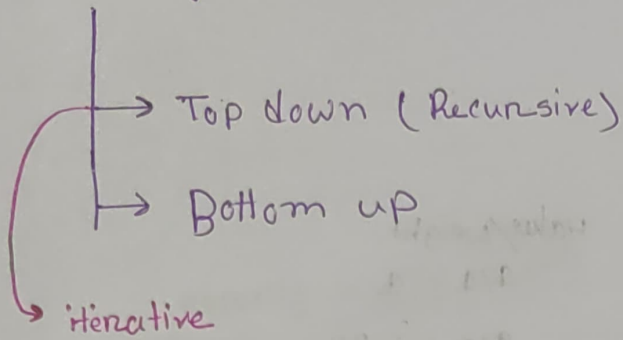 Top down (Recursive)
Bottom up
iterative